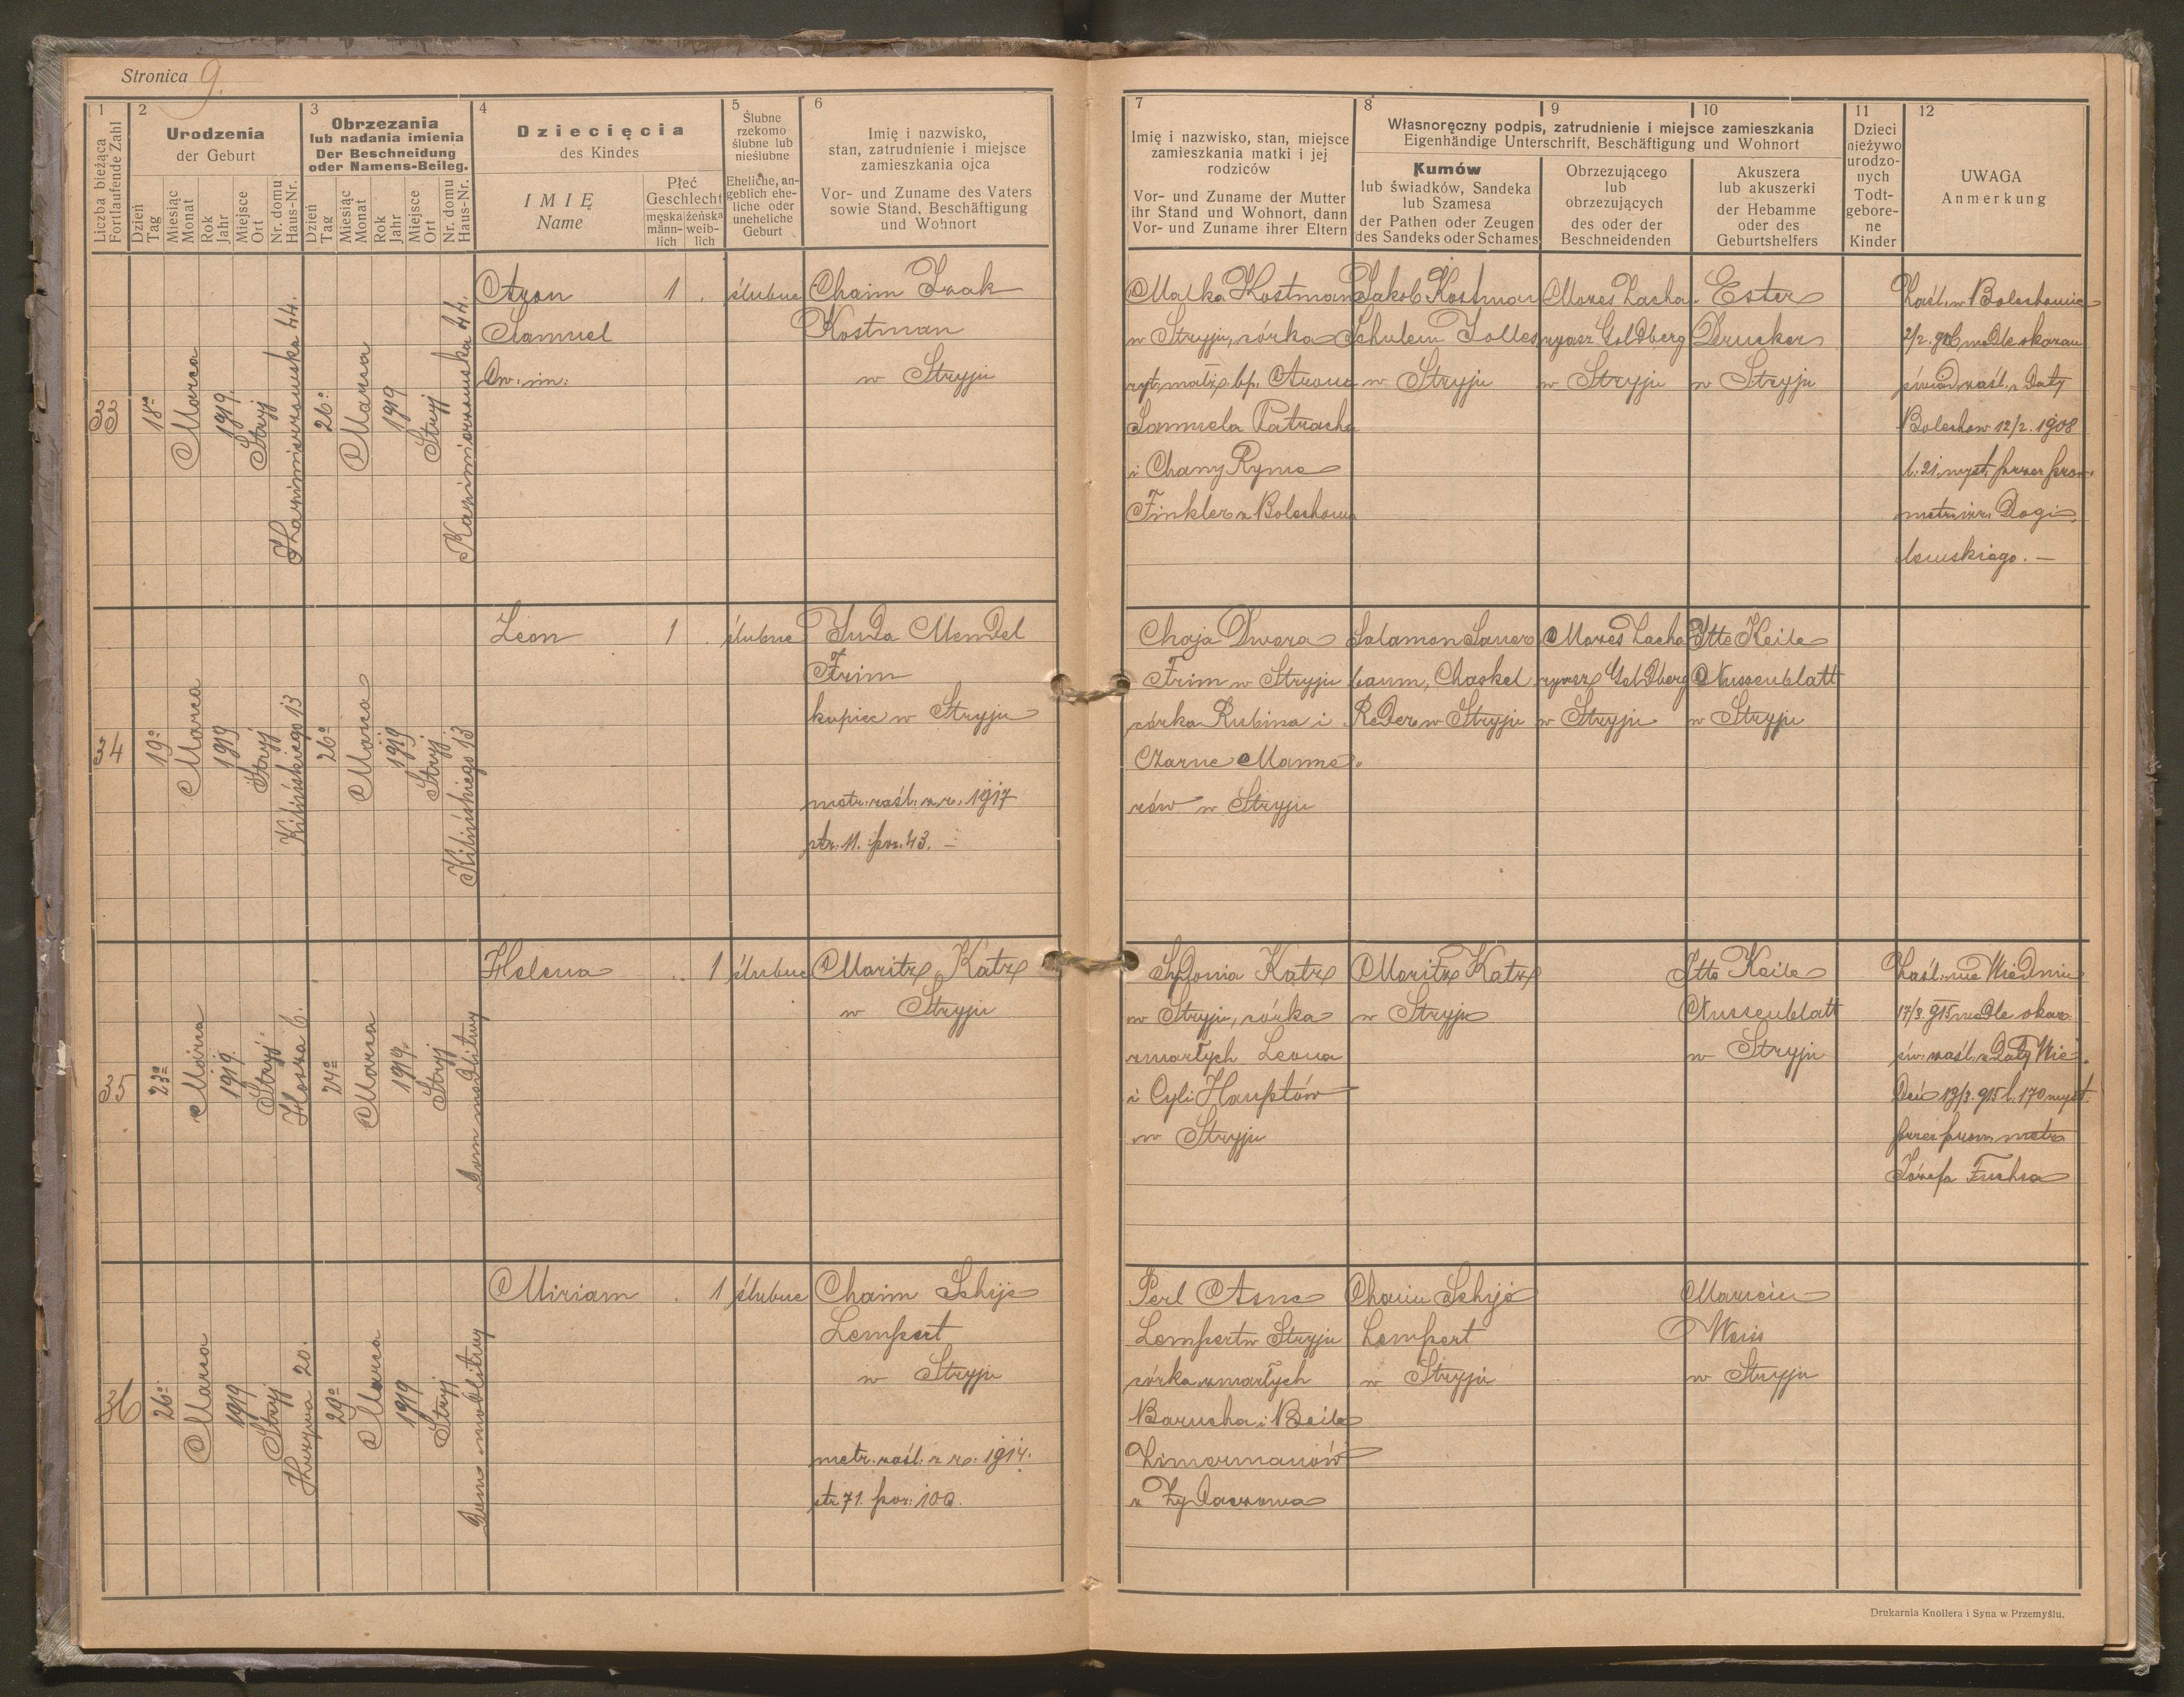 Stronica 9.
1
Liczba bieżąca
Fortlaufende Zahl
2
Urodzenia
der Geburt
Dzień
Tag
Miesiąc
Monat
Rok
Jahr
Miejsce
Ort
Nr. domu
Haus-Nr.
3
Obrzezania
lub nadania imienia
Der Beschneidung
oder Namens-Beileg.
Dzień
Tag
Miesiąc
Monat
Rok
Jahr
Miejsce
Ort
Nr. domu
Haus-Nr.
4
Dziecięcia
des Kindes
IMIĘ
Name
Płeć
Geschlecht
męska
männ-
lich
żeńska
weib-
lich
5
Ślubne
rzekomo
ślubne lub
nieślubne
Eheliche, an-
geblich ehe-
liche oder
uneheliche
Geburt
6
Imię i nazwisko,
stan, zatrudnienie i miejsce
zamieszkania ojca
Vor- und Zuname des Vaters
sowie Stand, Beschäftigung
und Wohnort
7
Imię i nazwisko, stan, miejsce
zamieszkania matki i jej
rodziców
Vor- und Zuname der Mutter
ihr Stand und Wohnort, dann
Vor- und Zuname ihrer Eltern
8
9
10
Własnoręczny podpis, zatrudnienie i miejsce zamieszkania
Eigenhändige Unterschrift, Beschäftigung und Wohnort
Kumów
lub świadków, Sandeka
lub Szamesa
der Pathen oder Zeugen
des Sandeks oder Schames
Obrzezującego
lub
obrzezujących
des oder der
Beschneidenden
Akuszera
lub akuszerki
der Hebamme
oder des
Geburtshelfers
11
Dzieci
nieżywo
urodzo-
nych
Todt-
gebore-
ne
Kinder
12
UWAGA
Anmerkung
33
18go
Marca
1919.
Stryj
Kazimierzowska 44.
26go
Marca
1919
Stryj
Kazimierzowska 44.
Aron
Samuel
Dw. im.
1
ślubne
Chaim Izak
Kostman
w Stryju
Malka Kostman
w Stryju, córka
ryt. małż. bp. Arona
Samuela Patracha
i Chany Ryme
Finkler z Bolechowa
Jakob Kostman
Schulem Jolles
w Stryju
Mozes Zacha-
ryasz Goldberg
w Stryju
Ester
Drucker
w Stryju
Zaśl. w Bolechowie
2/2. 908 wedle okazan
świad. zaśl. z daty
Bolechow 12/2. 1908
l. 21. wyst. przez prow.
metr. izr.
34
19go
Marca
1919
Stryj
Kilińskiego 13
26go
Marca
1919
Stryj
Kilińskiego 13
Leon
1
ślubne
Juda Mendel
Frim
kupiec w Stryju
metr. zaśl. z r. 1917
str. 11. poz. 43. –
Chaja Dwora
Frim w Stryju
córka Rubina i
Czarne Manne-
rów w Stryju
Salamon Sauer
baum, Chaskel
Reder w Stryju
Mozes Zacha
ryasz Goldberg
w Stryju
Itte Keile
Nussenblatt
w Stryju
35
23go
Marca
1919.
Stryj.
24go
Marca
1919.
Stryj
Dom modlitwy
Helena
1
ślubne
Moritz Katz
w Stryju
Sydonia Katz
w Stryju, córka
zmarłych Leona
i Cyli Hauptów
w Stryju
Moritz Katz
w Stryju
Itte Keile
Nussenblatt
w Stryju
Zaśl. we Wiedniu
17/3. 915 wedle okaz.
św. zaśl. z daty Wie-
deń 19/3. 915 l. 170 wyst.
przez prow. metr.
Józefa Fuchsa
36
26go
Marca
1919
Stryj
Krzywa 20.
29go
Marca
1919
Stryj
Dom modlitwy
Miriam
1
ślubne
Chaim Schije
Lempert
w Stryju
metr. zaśl. z r. 1914.
str 71. poz. 100.
Perl Asne
Lempert w Stryju
córka zmarłych
Barucha i Beile
Zimermanów
z Żydaczowa
Chaim Schije
Lempert
w Stryju
Weiss
w Stryju
Drukarnia Knollera i Syna w Przemyślu.